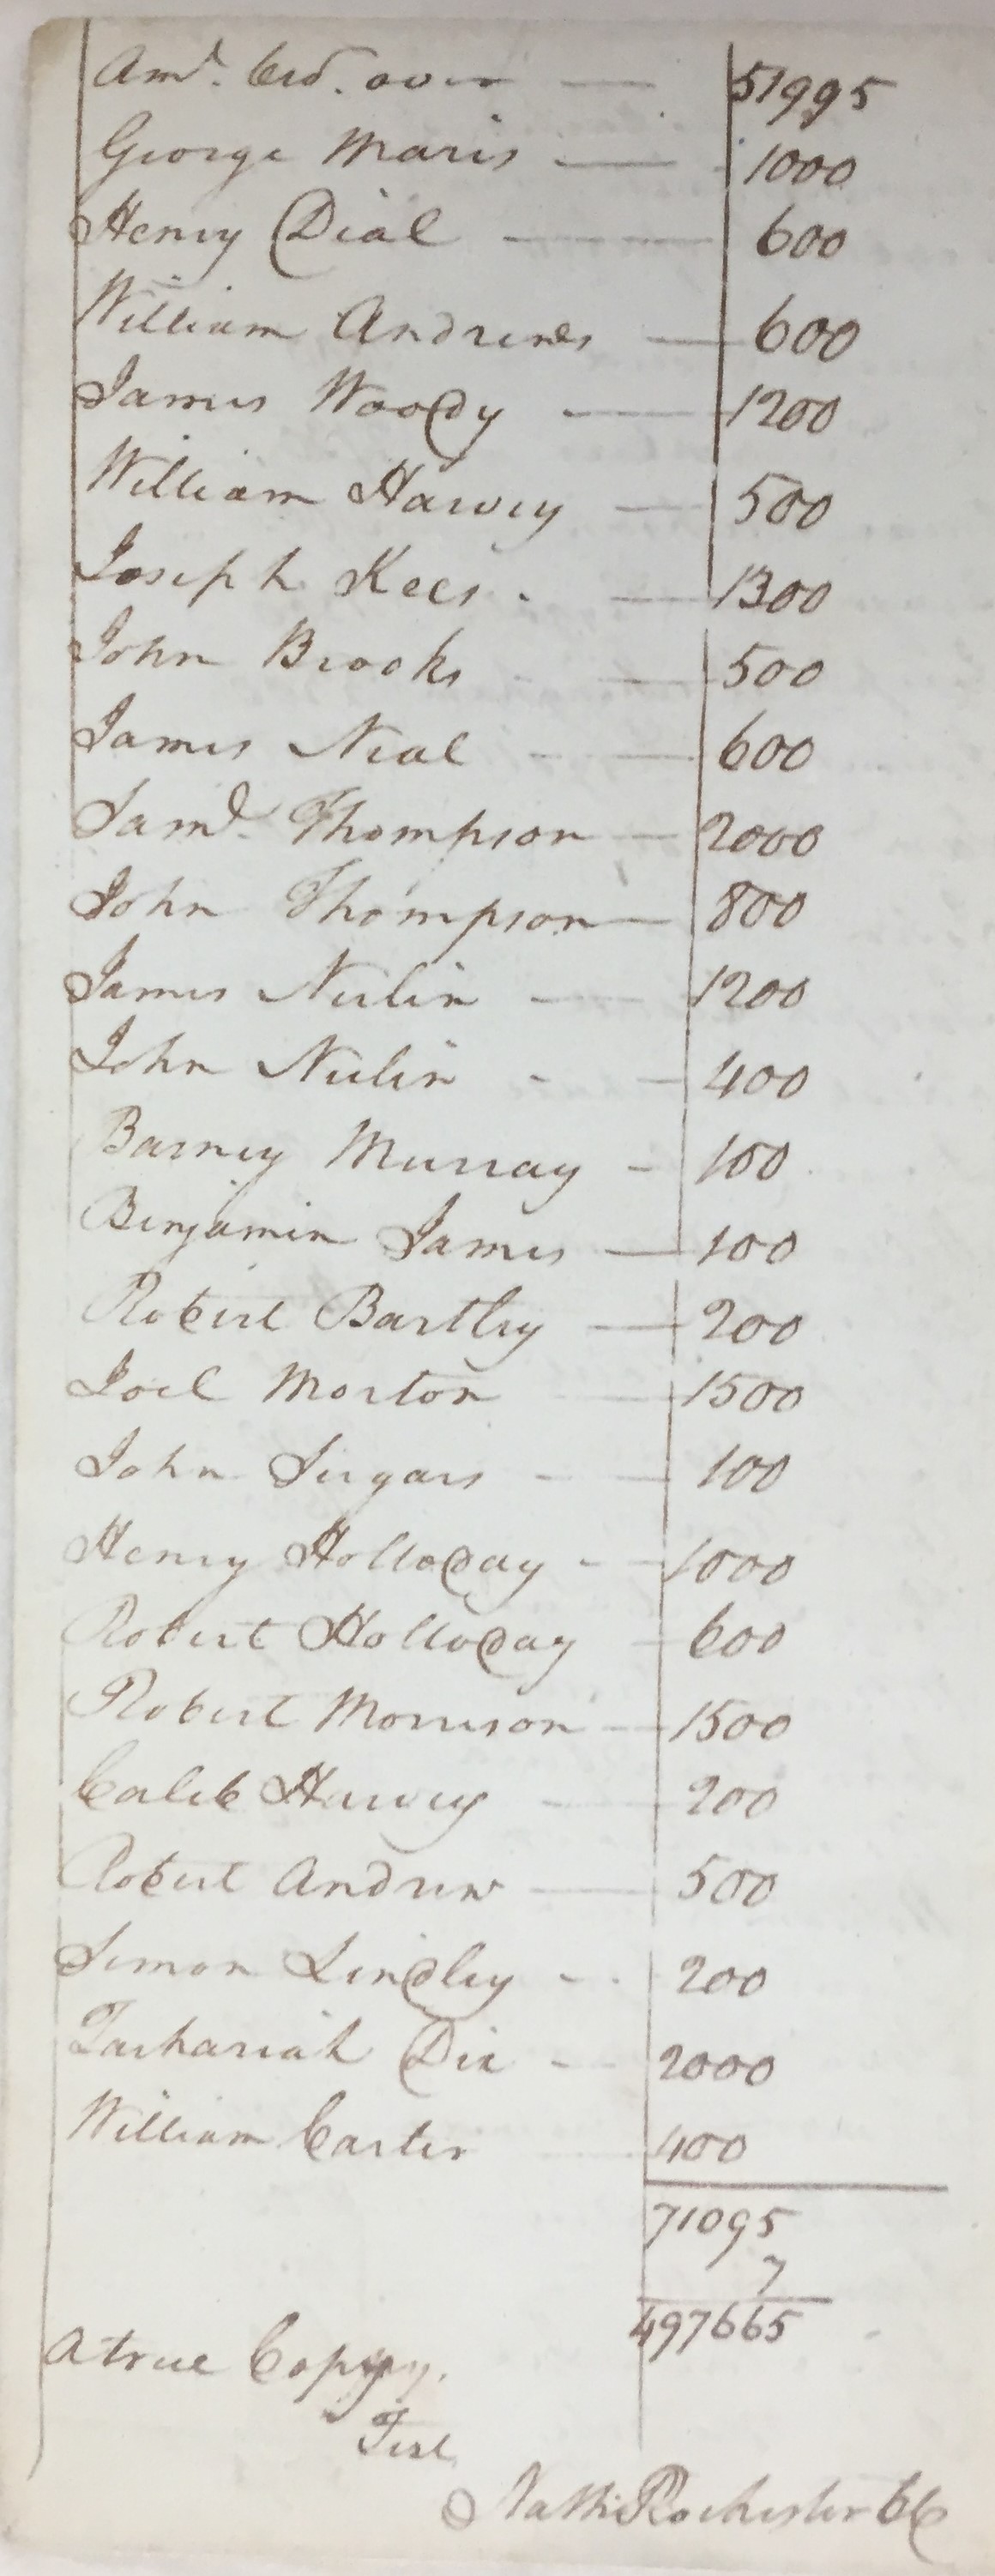 Amt. Brd. over — 51995
George Maris — 1000
Henry Dial — 600
William Andrews — 600
James Woody — 1200
William Harvey — 500
Joseph Kees. — 1300
John Brooks - — 500
James Neal — 600
Saml. Thompson — 2000
John Thompson — 800
James Nulin — 1200
John Nulin - — 400
Barney Murray — 100
Benjamin James — 100
Robert Bartley — 200
Joel Morton — 1500
John Sugars — 100
Henry Holloday - — 1000
Robert Holloday — 600
Robert Morrison — 1500
Caleb Harvey — 200
Robert Andrew — 500
Simon Lindley - - 200
Zachariah Dix — 2000
William Carter 400
71095
7
497665
A true Copy.
Test
Nathl. Rochester CC